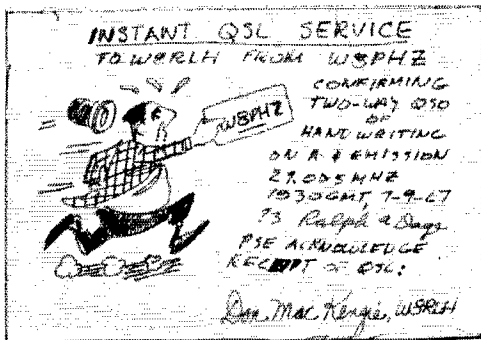 INSTANT QSL SERVICE
TO W8RLH FROM W8PHZ
W8PHZ
CONFIRMING
TWO-WAY QSO
OF
HANDWRITING
ON A EMISSION
MHZ
GMT, 7-9-67
73 Ralph
PSE ACKNOWLEDGE
RECEIPT OF QSL:
Don Mac Kenzie, W8RLH